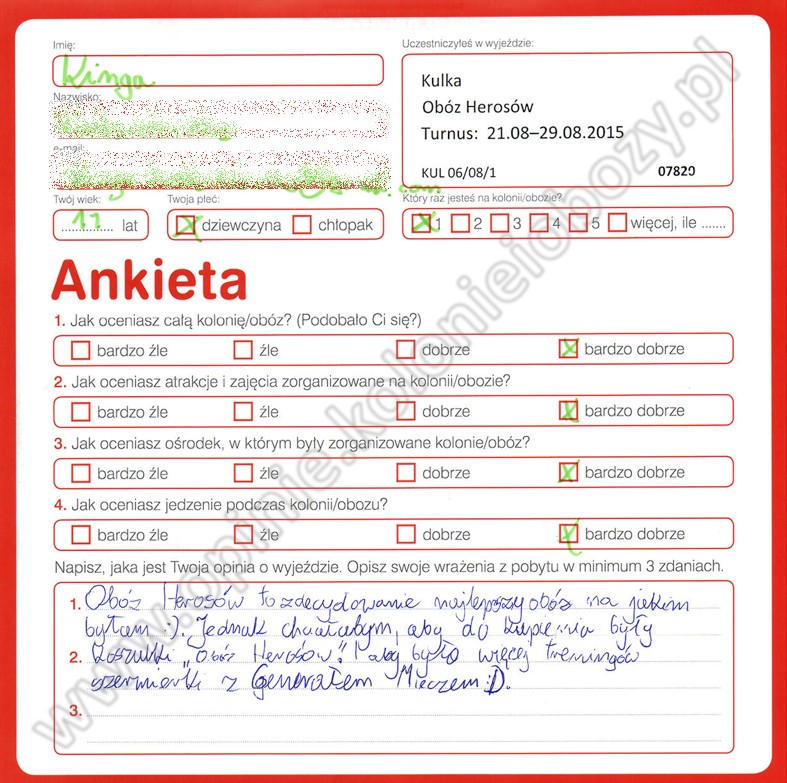 Imię:
Kinga
Uczestniczyłeś w wyjeździe:
Kulka
Obóz Herosów
Turnus: 21.08–29.08.2015
KUL 06/08/1 07829
Nazwisko:
e-mail:
.com
Twój wiek: Twoja płeć: Który raz jesteś na kolonii/obozie?
11 lat X dziewczyna chłopak X 1 2 3 4 5 więcej, ile .......
Ankieta
1. Jak oceniasz całą kolonię/obóz? (Podobało Ci się?)
bardzo źle źle dobrze X bardzo dobrze
2. Jak oceniasz atrakcje i zajęcia zorganizowane na kolonii/obozie?
bardzo źle źle dobrze X bardzo dobrze
3. Jak oceniasz ośrodek, w którym były zorganizowane kolonie/obóz?
bardzo źle źle dobrze X bardzo dobrze
4. Jak oceniasz jedzenie podczas kolonii/obozu?
bardzo źle źle dobrze X bardzo dobrze
Napisz, jaka jest Twoja opinia o wyjeździe. Opisz swoje wrażenia z pobytu w minimum 3 zdaniach.
1. Obóz Herosów to zdecydowanie najlepszy obóz na jakim
byłam :). Jednak chciałabym, aby do kupienia były
2. koszulki „Obóz Herosów”! I aby było więcej treningów
szermierki z Generałem Mieczem :D.
3.
www.opinie.kolonieiobozy.pl